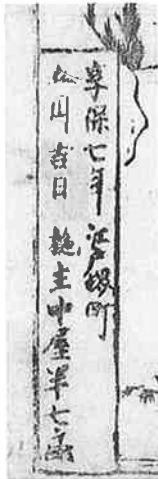 享保七年 江戸町
月吉日 施主中屋半七